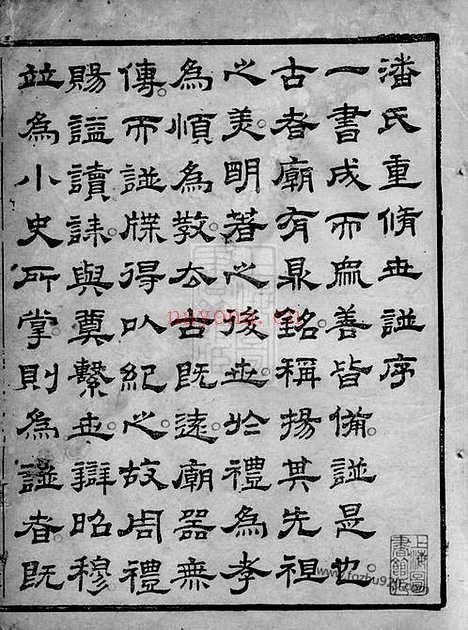 潘氏重脩世譜序
一書成而眾善皆備譜是也
古者廟有鼎銘稱揚其先祖
之美明著之後世於禮為孝
為順為教去古既遠廟器無
傳而譜牒得以紀之故周禮
賜諡讀誄與奠繫世辯昭穆
竝為小史所掌則為譜者既
上海圖書館藏